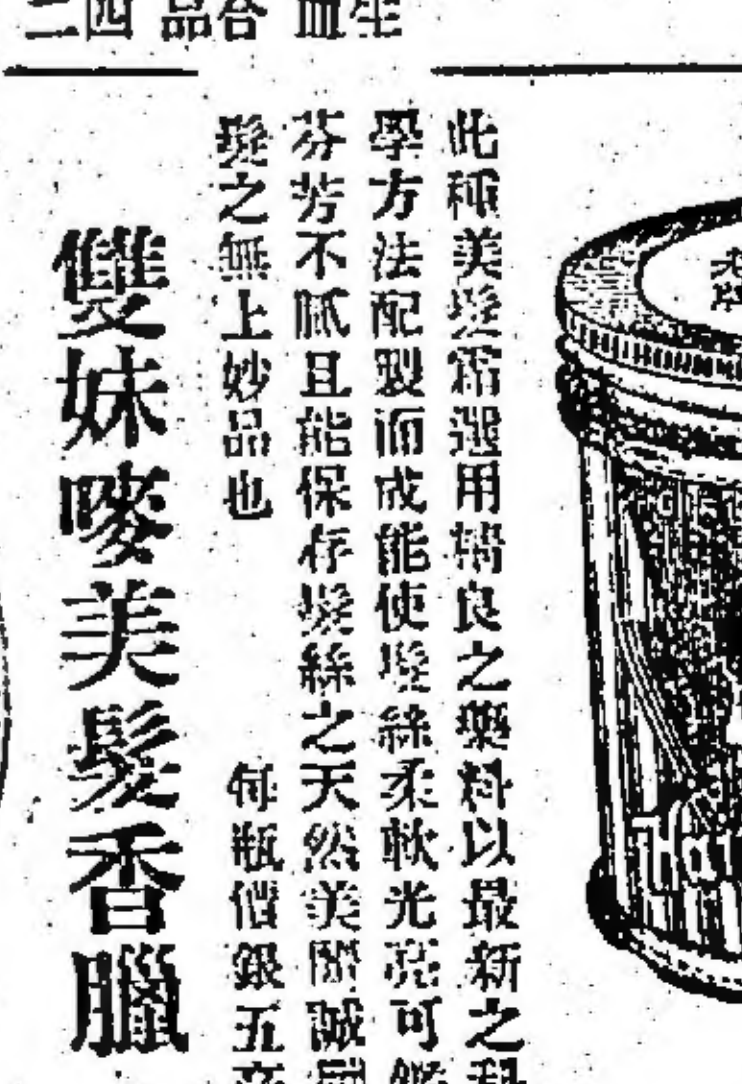 老牌
此種美髮霜選用精良之藥料以最新之科
學方法配製而成能使髮絲柔軟光亮可鑑
芬芳不膩且能保存髮絲之天然美麗誠
髮之無上妙品也
每瓶價銀五
雙妹嘜美髮香臘